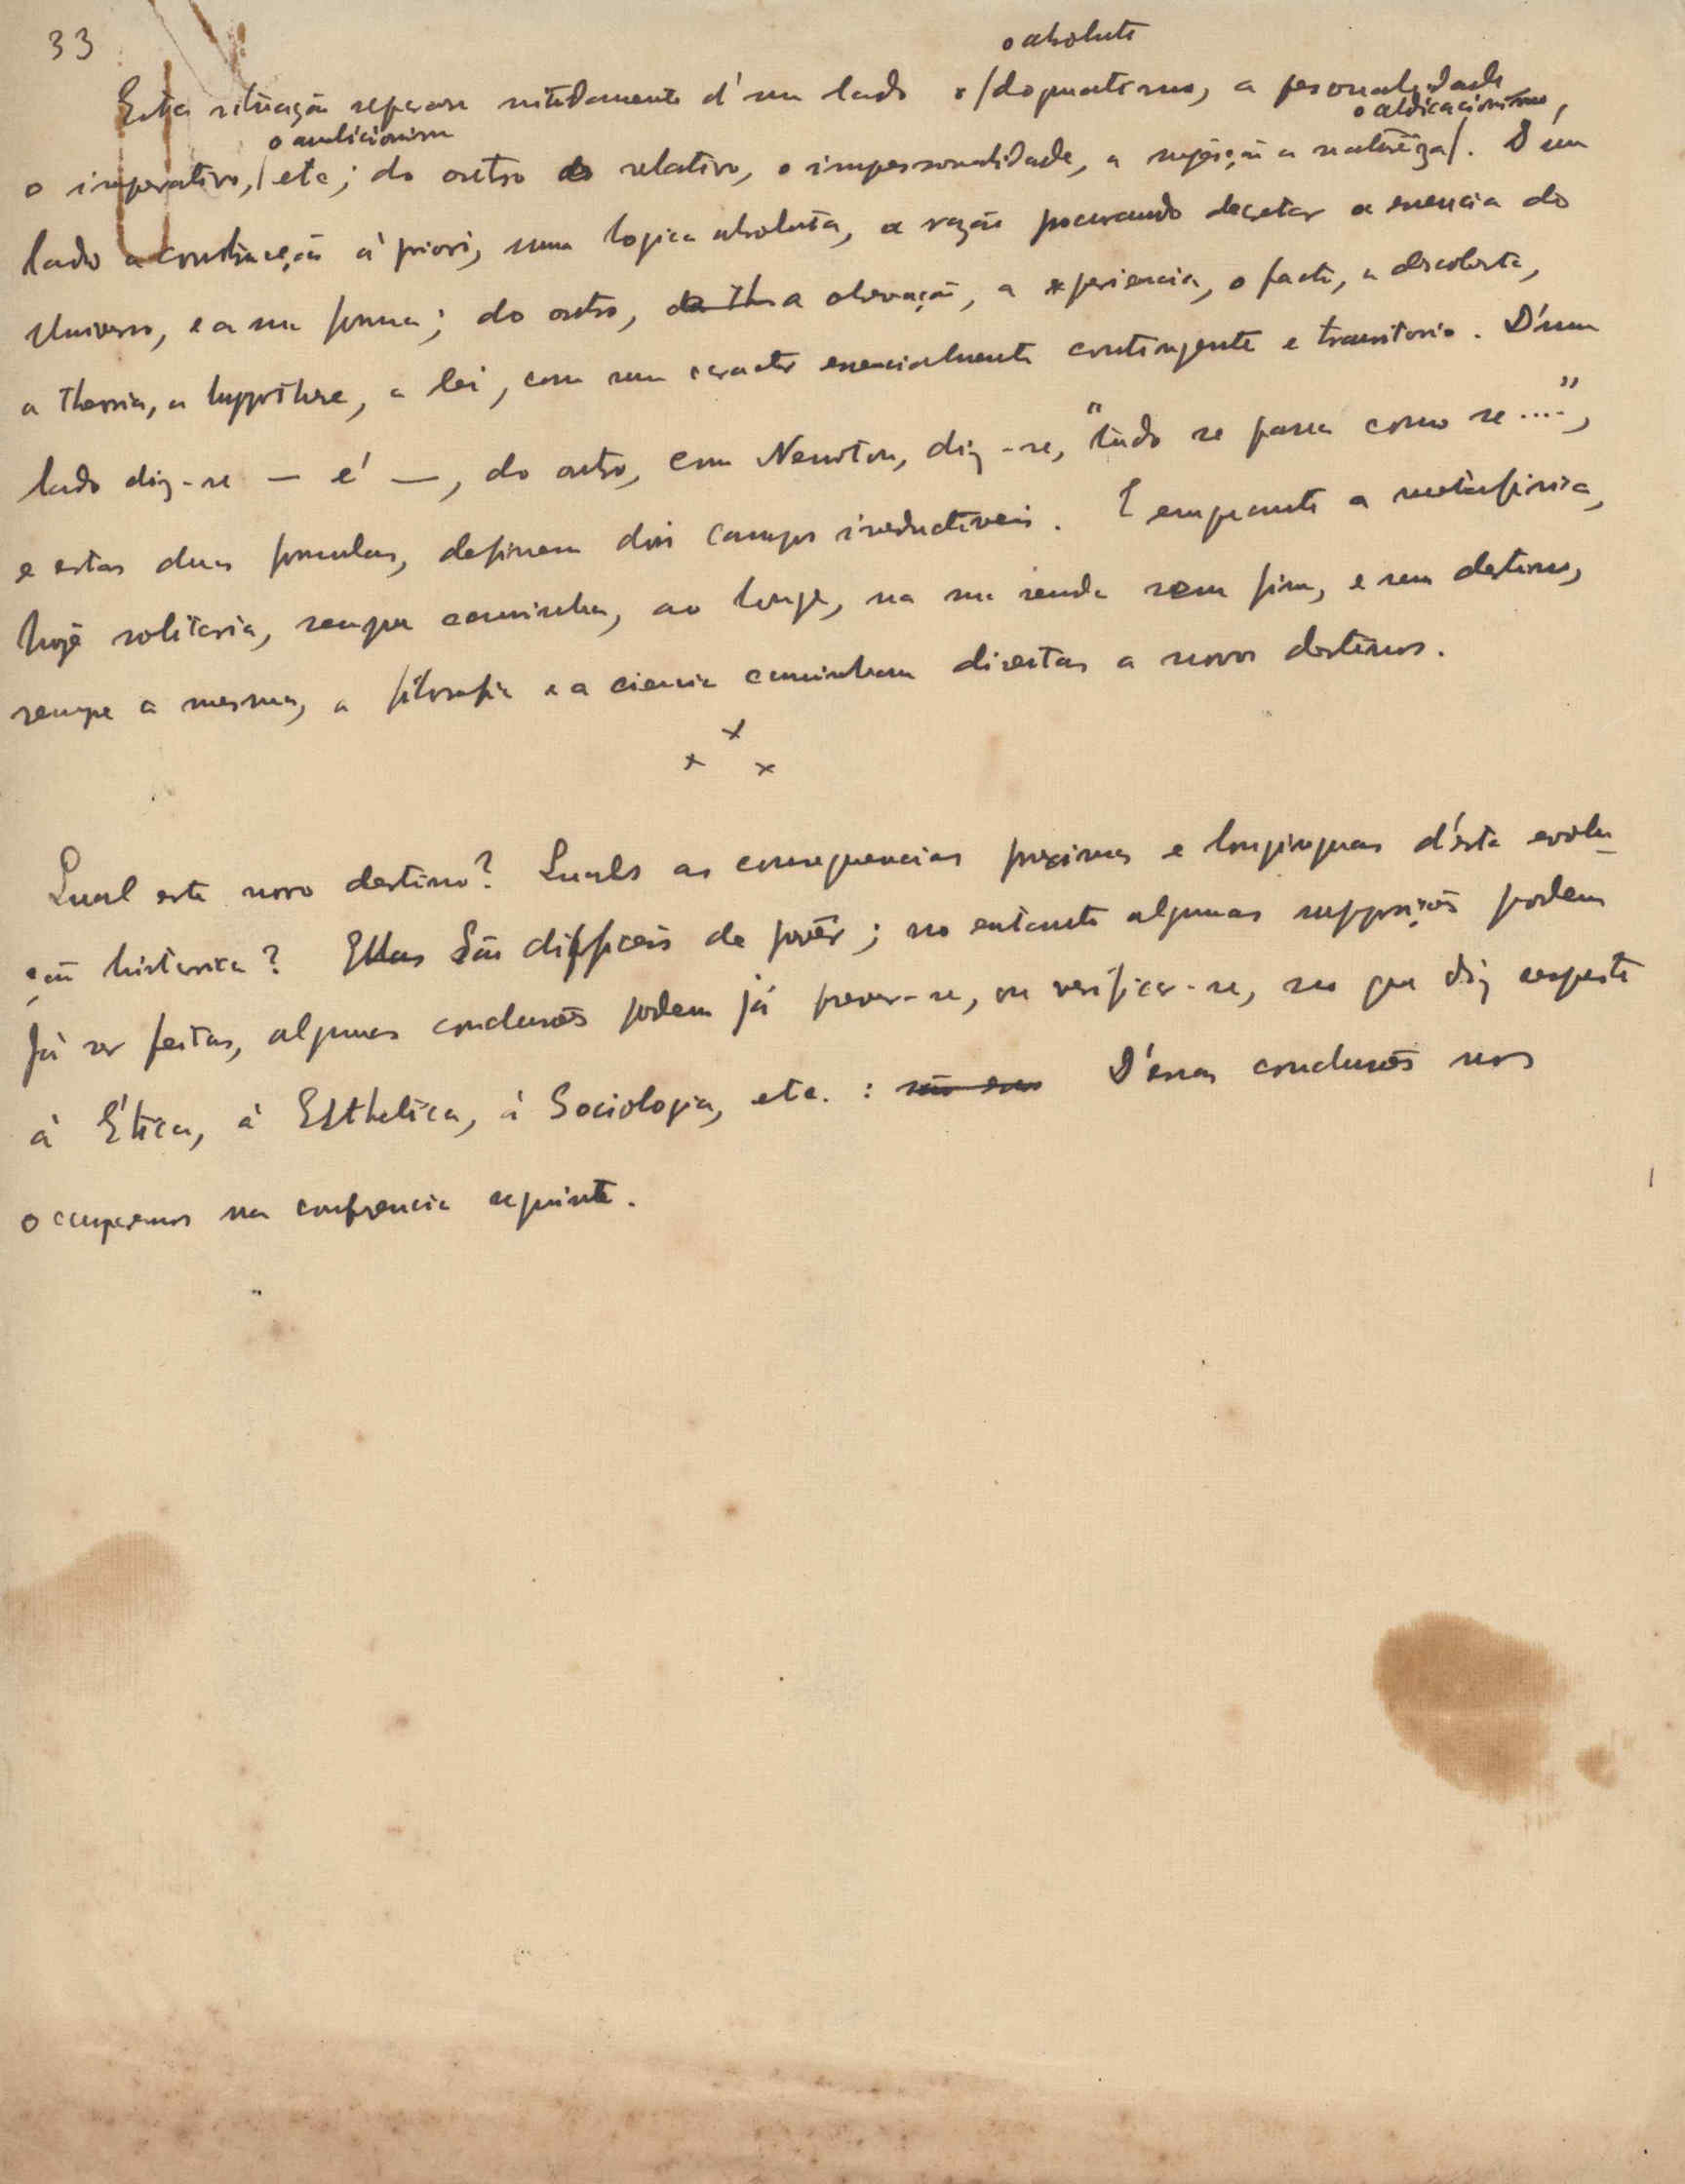 33
o absoluto
Esta situação separa nitidamente d'um lado o /dogmatismo, a personalidade
o abdicacionismo,
o ambicionismo
o imperativo,/ etc; do outro o relativo, o impersonalidade, a sujeição a natureza/. D'um
lado a construcção á priori, uma logica absoluta, a razão procurando decretar a essencia do
Universo, e a sua forma; do outro, a observação, a experiencia, o facto, a descoberta,
a theoria, a hypothese, a lei, com um caracter essencialmente contingente e transitorio. D'um
lado diz-se — é —, do outro, com Newton, diz-se, "tudo se passa como se ....",
e estas duas formulas, definem dois campos irreductiveis. E emquanto a metafisica,
hoje solitaria, sempre caminha, ao longe, na sua senda sem fim, e sem destino,
sempre a mesma, a filosofia e a ciencia caminham direitas a novos destinos.
x
x x
Qual este novo destino? Quaes as consequencias proximas e longinquas d'esta evolu-
ção historica? Ellas São difficeis de prevêr; no entanto algumas supposições podem
já ser feitas, algumas conclusões podem já prever-se, ou verificar-se, no que diz respeito
á Ética, á Esthetica, á Sociologia, etc. : D'essas conclusões nos
occuparemos na conferencia seguinte.